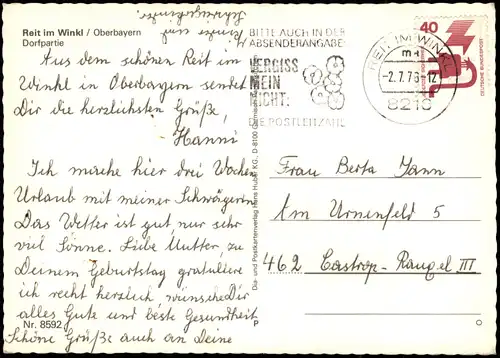 Reit im Winkl / Oberbayern
Dorfpartie
Aus dem schönen Reit im
Winkl in Oberbayern sendet
Dir die herzlichsten Grüße,
Hanni
Ich mache hier drei Wochen
Urlaub mit meiner Schwägerin
Das Wetter ist gut, nur sehr
viel Sonne. Liebe Mutter, zu
Deinem Geburtstag gratuliere
ich recht herzlich, wünsche Dir
alles Gute und beste Gesundheit
Schöne Grüße auch an Deine
Kinder und
Schwiegerkinder
Nr. 8592
P
O
BITTE AUCH IN DER
ABSENDERANGABE:
VERGISS
MEIN
NICHT:
DIE POSTLEITZAHL
REIT IM WINKL
ma
-2.7.76-12
8216
40
DEUTSCHE BUNDESPOST
Frau Berta Jann
Am Urnenfeld 5
462 Castrop-Rauxel III